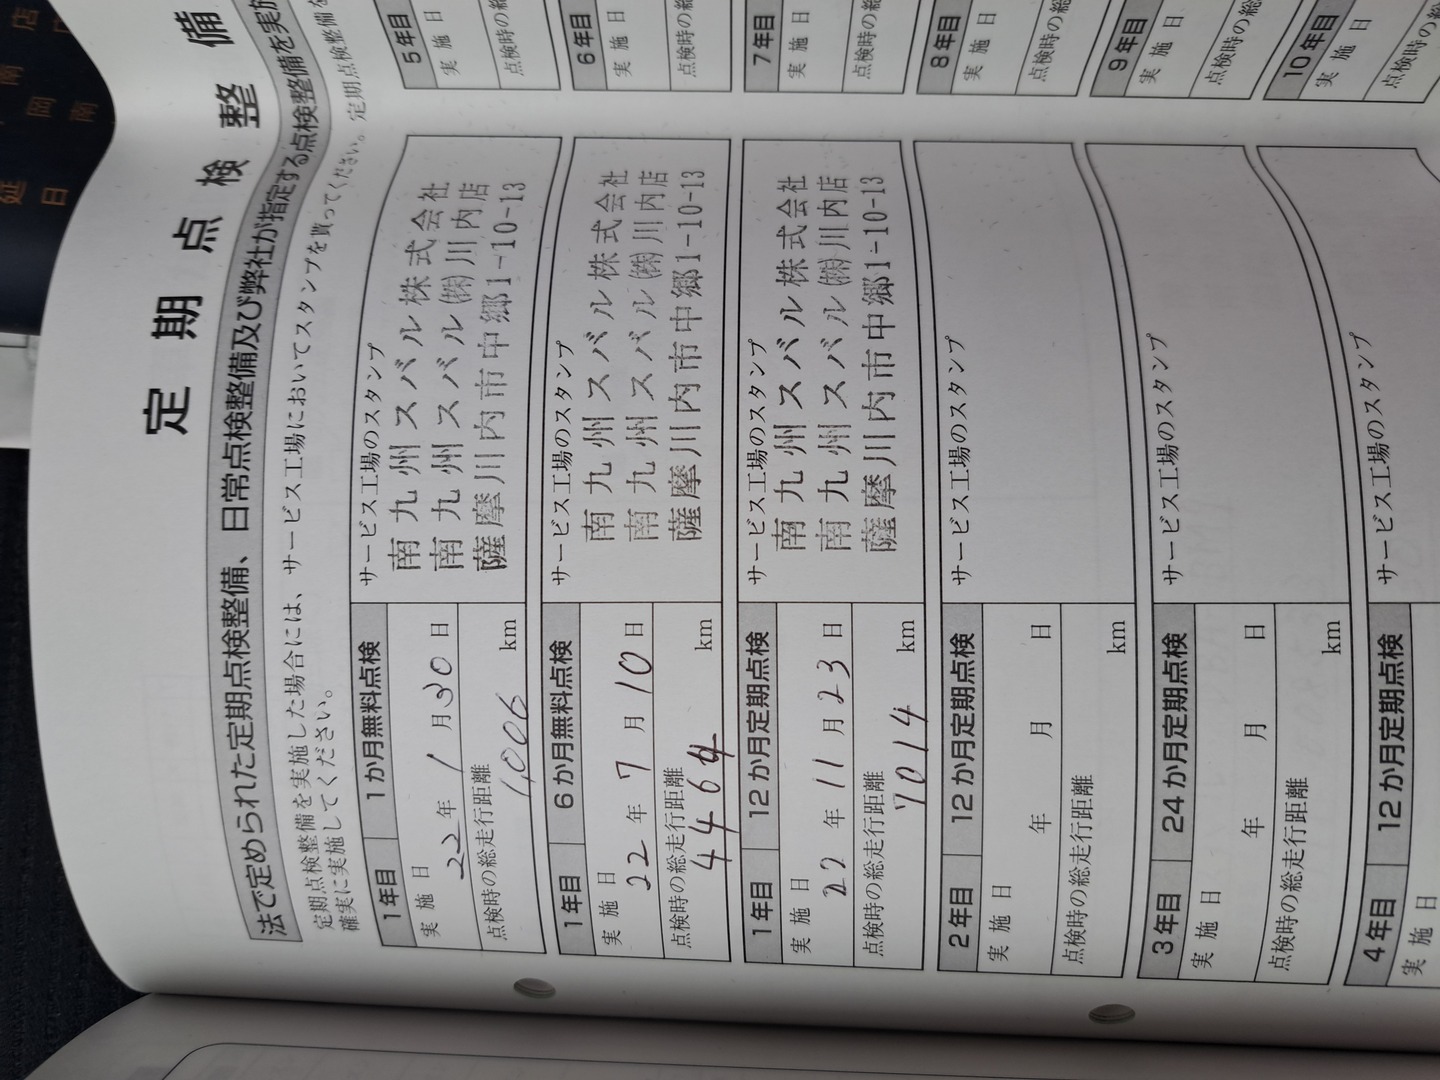 定期点検整備
法で定められた定期点検整備、日常点検整備及び弊社が指定する点検整備を実施
定期点検整備を実施した場合には、サービス工場においてスタンプを貰ってください。定期点検整備を
確実に実施してください。
1年目 1か月無料点検 サービス工場のスタンプ
実施日 22年 1月30日
点検時の総走行距離 1,006 km
南九州スバル株式会社
南九州スバル㈱川内店
薩摩川内市中郷1-10-13
1年目 6か月無料点検 サービス工場のスタンプ
実施日 22年 7月10日
点検時の総走行距離 4464 km
南九州スバル株式会社
南九州スバル㈱川内店
薩摩川内市中郷1-10-13
1年目 12か月定期点検 サービス工場のスタンプ
実施日 22年 11月23日
点検時の総走行距離 7014 km
南九州スバル株式会社
南九州スバル㈱川内店
薩摩川内市中郷1-10-13
2年目 12か月定期点検 サービス工場のスタンプ
実施日 年 月 日
点検時の総走行距離 km
3年目 24か月定期点検 サービス工場のスタンプ
実施日 年 月 日
点検時の総走行距離 km
4年目 12か月定期点検 サービス工場のスタンプ
実施日
5年目
実施日
点検時の総
6年目
実施日
点検時の総
7年目
実施日
点検時の総
8年目
実施日
点検時の総
9年目
実施日
点検時の総
10年目
実施日
点検時の